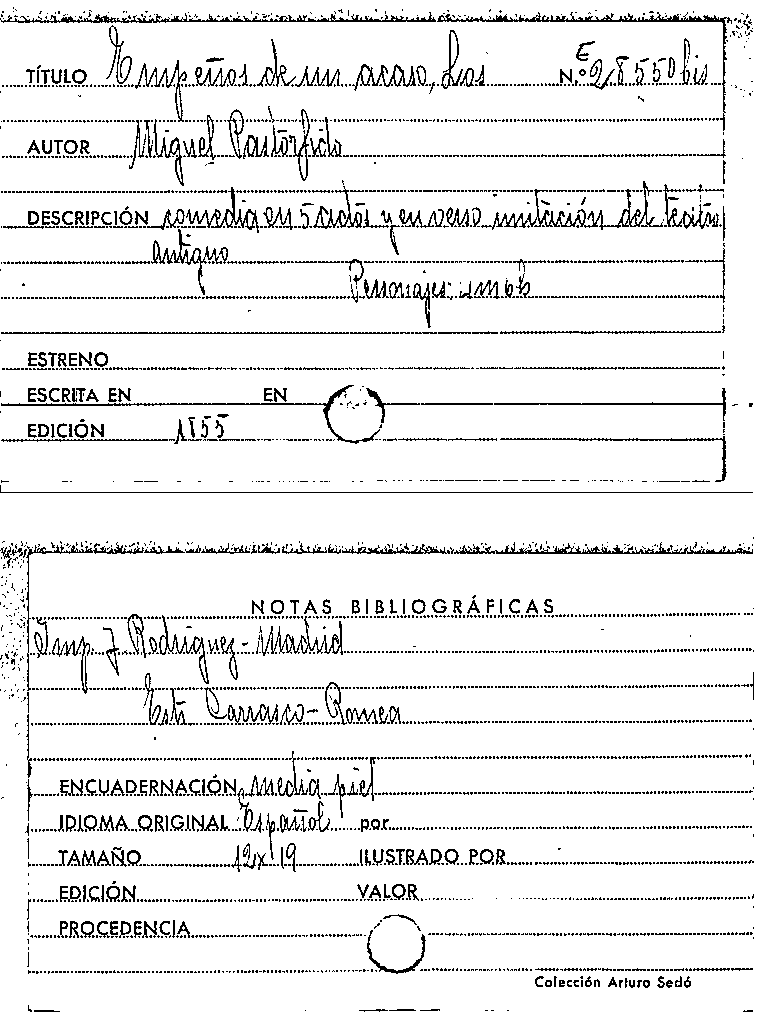 TÍTULO Empeños de un acaso, Los N.º E 28550 bis
AUTOR Miguel Pastorfido
DESCRIPCIÓN comedia en 5 actos y en verso imitación del teatro
antiguo
Personajes: 4 m 6 h
ESTRENO
ESCRITA EN EN
EDICIÓN 1855
NOTAS BIBLIOGRÁFICAS
Imp. J. Rodriguez - Madrid
Estr Carrasco - Romea
ENCUADERNACIÓN media piel
IDIOMA ORIGINAL Español por
TAMAÑO 12x19 ILUSTRADO POR
EDICIÓN VALOR
PROCEDENCIA
Colección Arturo Sedó